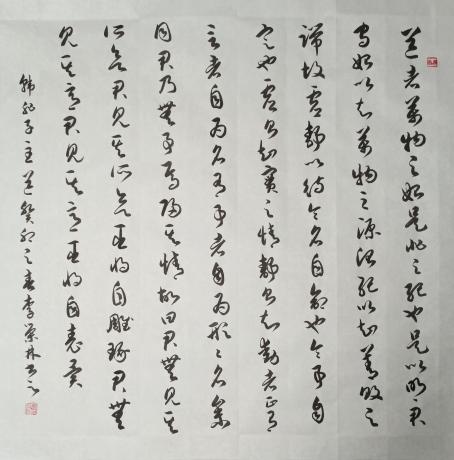 道者萬物之始是非之紀也是以明君
守始以知萬物之源治紀以知善敗之
端故虛靜以待令名自命也令事自
定也虛則知實之情靜則知動者正有
言者自為名有事者自為形々名參
同君乃無事焉歸其情故曰君無見其
所欲君見其所欲臣將自雕琢君無
見其意君見其意臣將自表異
韓非子主道癸卯之春李林书